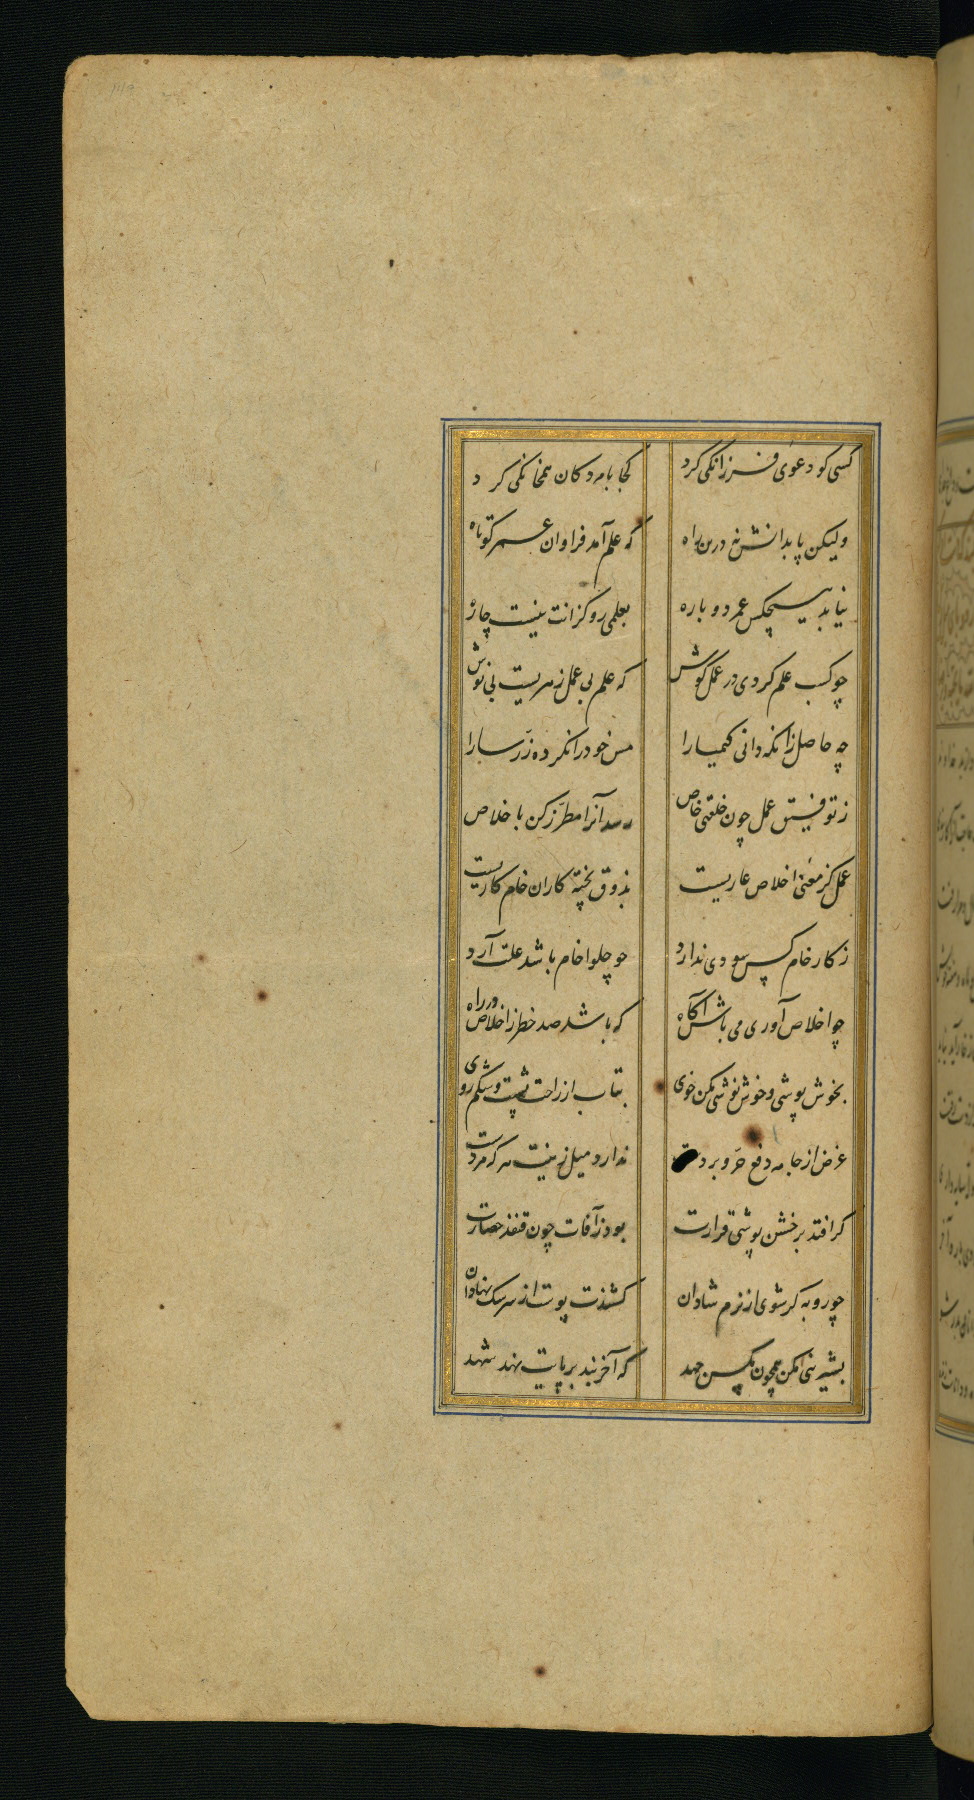 کسی کو دعوی فرزانگی کرد کجا با مردگان همخانگی کرد
ولیکن پا بدانش نه درین راه که علم آمد فراوان عمر کوتاه
نیابد هیچکس عمر دوباره بعلمی رو کزانت نیست چاره
چو کسب علم کردی در عمل کوش که علم بی عمل زهریست بی نوش
چه حاصل زانکه دانی کیمیا را مس خود را نکرده زر سارا
ز توفیق عمل چون خلعتی خاص رسد آنرا مطرز کن با خلاص
عمل کز معنی اخلاص عاریست بذوق پخته کاران خام کاریست
ز کار خام کس سودی ندارد چو حلوا خام باشد علت آرد
چو اخلاص آوری می باش آگاه که باشد صد خطر ز اخلاص در راه
بخوش پوشی و خوش نوشی مکن خوی بتاب از راحت پشت و شکم روی
غرض از جامه دفع حر و بردست ندارد میل زینت هر که مردست
گر افتد بر خشن پوشی قرارت بود ز آفات چون قنفذ حصارت
چو روبه گر شوی از نرم شادان کشندت پوست از سر سگ نهادان
بشیرینی مکن همچون مگس جهد که آخر بند بر پایت نهد شهد